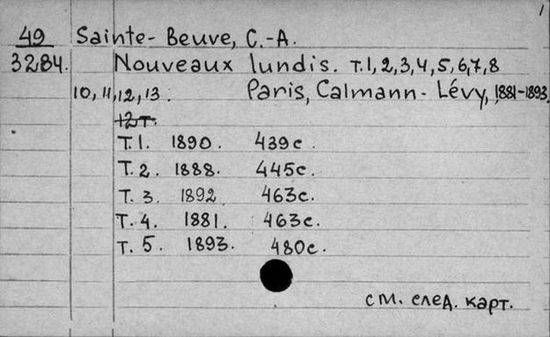 1
49 Sainte-Beuve, C.-A.
3284. Nouveaux lundis. т.1,2,3,4,5,6,7,8
10,11,12,13. Paris, Calmann-Lévy, 1881-1893,
12т.
Т.1. 1890. 439с.
Т.2. 1888. 445с.
Т.3. 1892 463с.
Т.4. 1881. 463с.
Т.5. 1893. 480с.
см. след. карт.